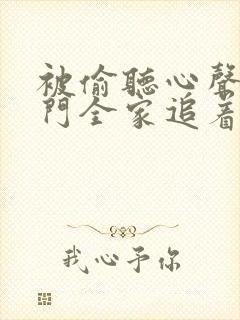 被偷聽心聲
門全家追着
我心予你